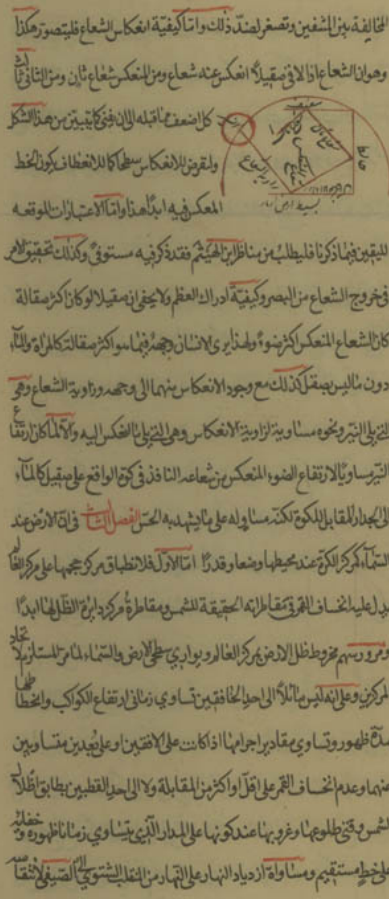 المخالفة بين المشفين وتصغر لضد ذلك واما كيفية انعكاس الشعاع فليتصور هكذا
وهو ان الشعاع اذا لاقى صقيلاً انعكس عنه شعاع ومن المنعكس شعاع ثان ومن الثانى ثالث
كل اضعف مما قبله الى ان يفنى كما يتبين من هذا الشكل
ولنفرض للانعكاس سطحا كما للانعطاف يكون الخط
المنعكس فيه ابداً هذا واما الاعتبارات الموقعة
لليقين فيما ذكرنا فليطلب من مناظر ابن الهيثم فقد ذكر فيه مستوفى وكذلك تحقيق الامر
فى خروج الشعاع من البصر وكيفية ادراك العظم ولا يخفى ان صقيلا لو كان اكثر صقالة
كان الشعاع المنعكس اكثر ضوءً ولهذا يرى الانسان وجهه فيما هو اكثر صقالة كالمراة والماء
دون ما ليس بصقيل كذلك مع وجود الانعكاس منهما الى وجهه وزاوية الشعاع وهى
التى يلى النير ونحوه مساوية لزاوية الانعكاس وهى التى يلى ما انعكس اليه والا لما كان ارتفاع
النير مساويًا لارتفاع الضوء المنعكس من شعاعه النافذ فى كوة الواقع على صقيل كالماء
الى الجدار المقابل للكوة لكنه مساو له على ما يشهد به الحس الفصل فى ان الارض عند
السماء كمركز الكرة عند محيطها وضعا وقدرًا اما الاول فلانطباق مركز حجمها على مركز العالم
يدل عليه انخساف القمر فى مقاطراته الحقيقية للشمس ومقاطرة مركز دايرة الظل لها ابدًا
ومرور سهم مخروط ظل الارض بمركز العالم وبوازى سطحى الارض والسماء لما مر المستلزم لاتحاد
المركزين وعلى انه ليس مائلاً الى احد الخافقين تساوى زمانى ارتفاع الكواكب وانحطاطها
مدة ظهور وتساوى مقادير اجرامها اذا كانت على الافقين او على بعدين متساويين
منهما وعدم انخساف القمر على اقل او اكثر من المقابلة ولا الى احد القطبين تطابق اظلال
الشمس وقتى طلوعها وغروبها عند كونها على المدار الذى يتساوى زمانا ظهوره وخفائه
على خط مستقيم ومساواة ازدياد النهار على النهار من المنقلب الشتوى الى الصيفى لانتقاصه